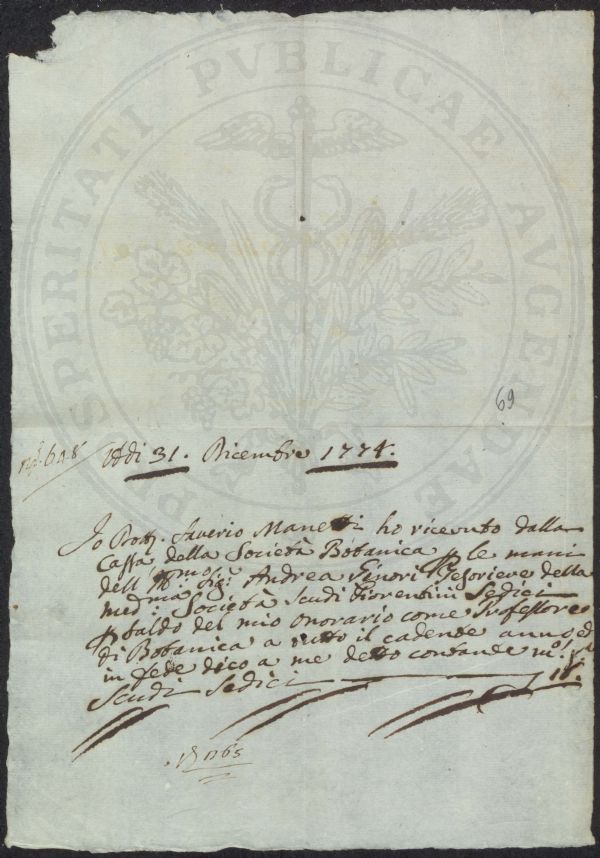 PROSPERITATI PVBLICAE AVGENDAE
69
Adi 31. Dicembre 1774.
Io Dott. Saverio Manetti ho ricevuto dalla
Cassa della Società Botanica p le mani
dell' Ill:mo Sig: Andrea Ginori Tesoriere della
med:ma Società Scudi Fiorentini Sedici
p saldo del mio onorario come Professore
di Botanica a tutto il cadente anno, ed
in fede dico a me detto contante
Scudi Sedici